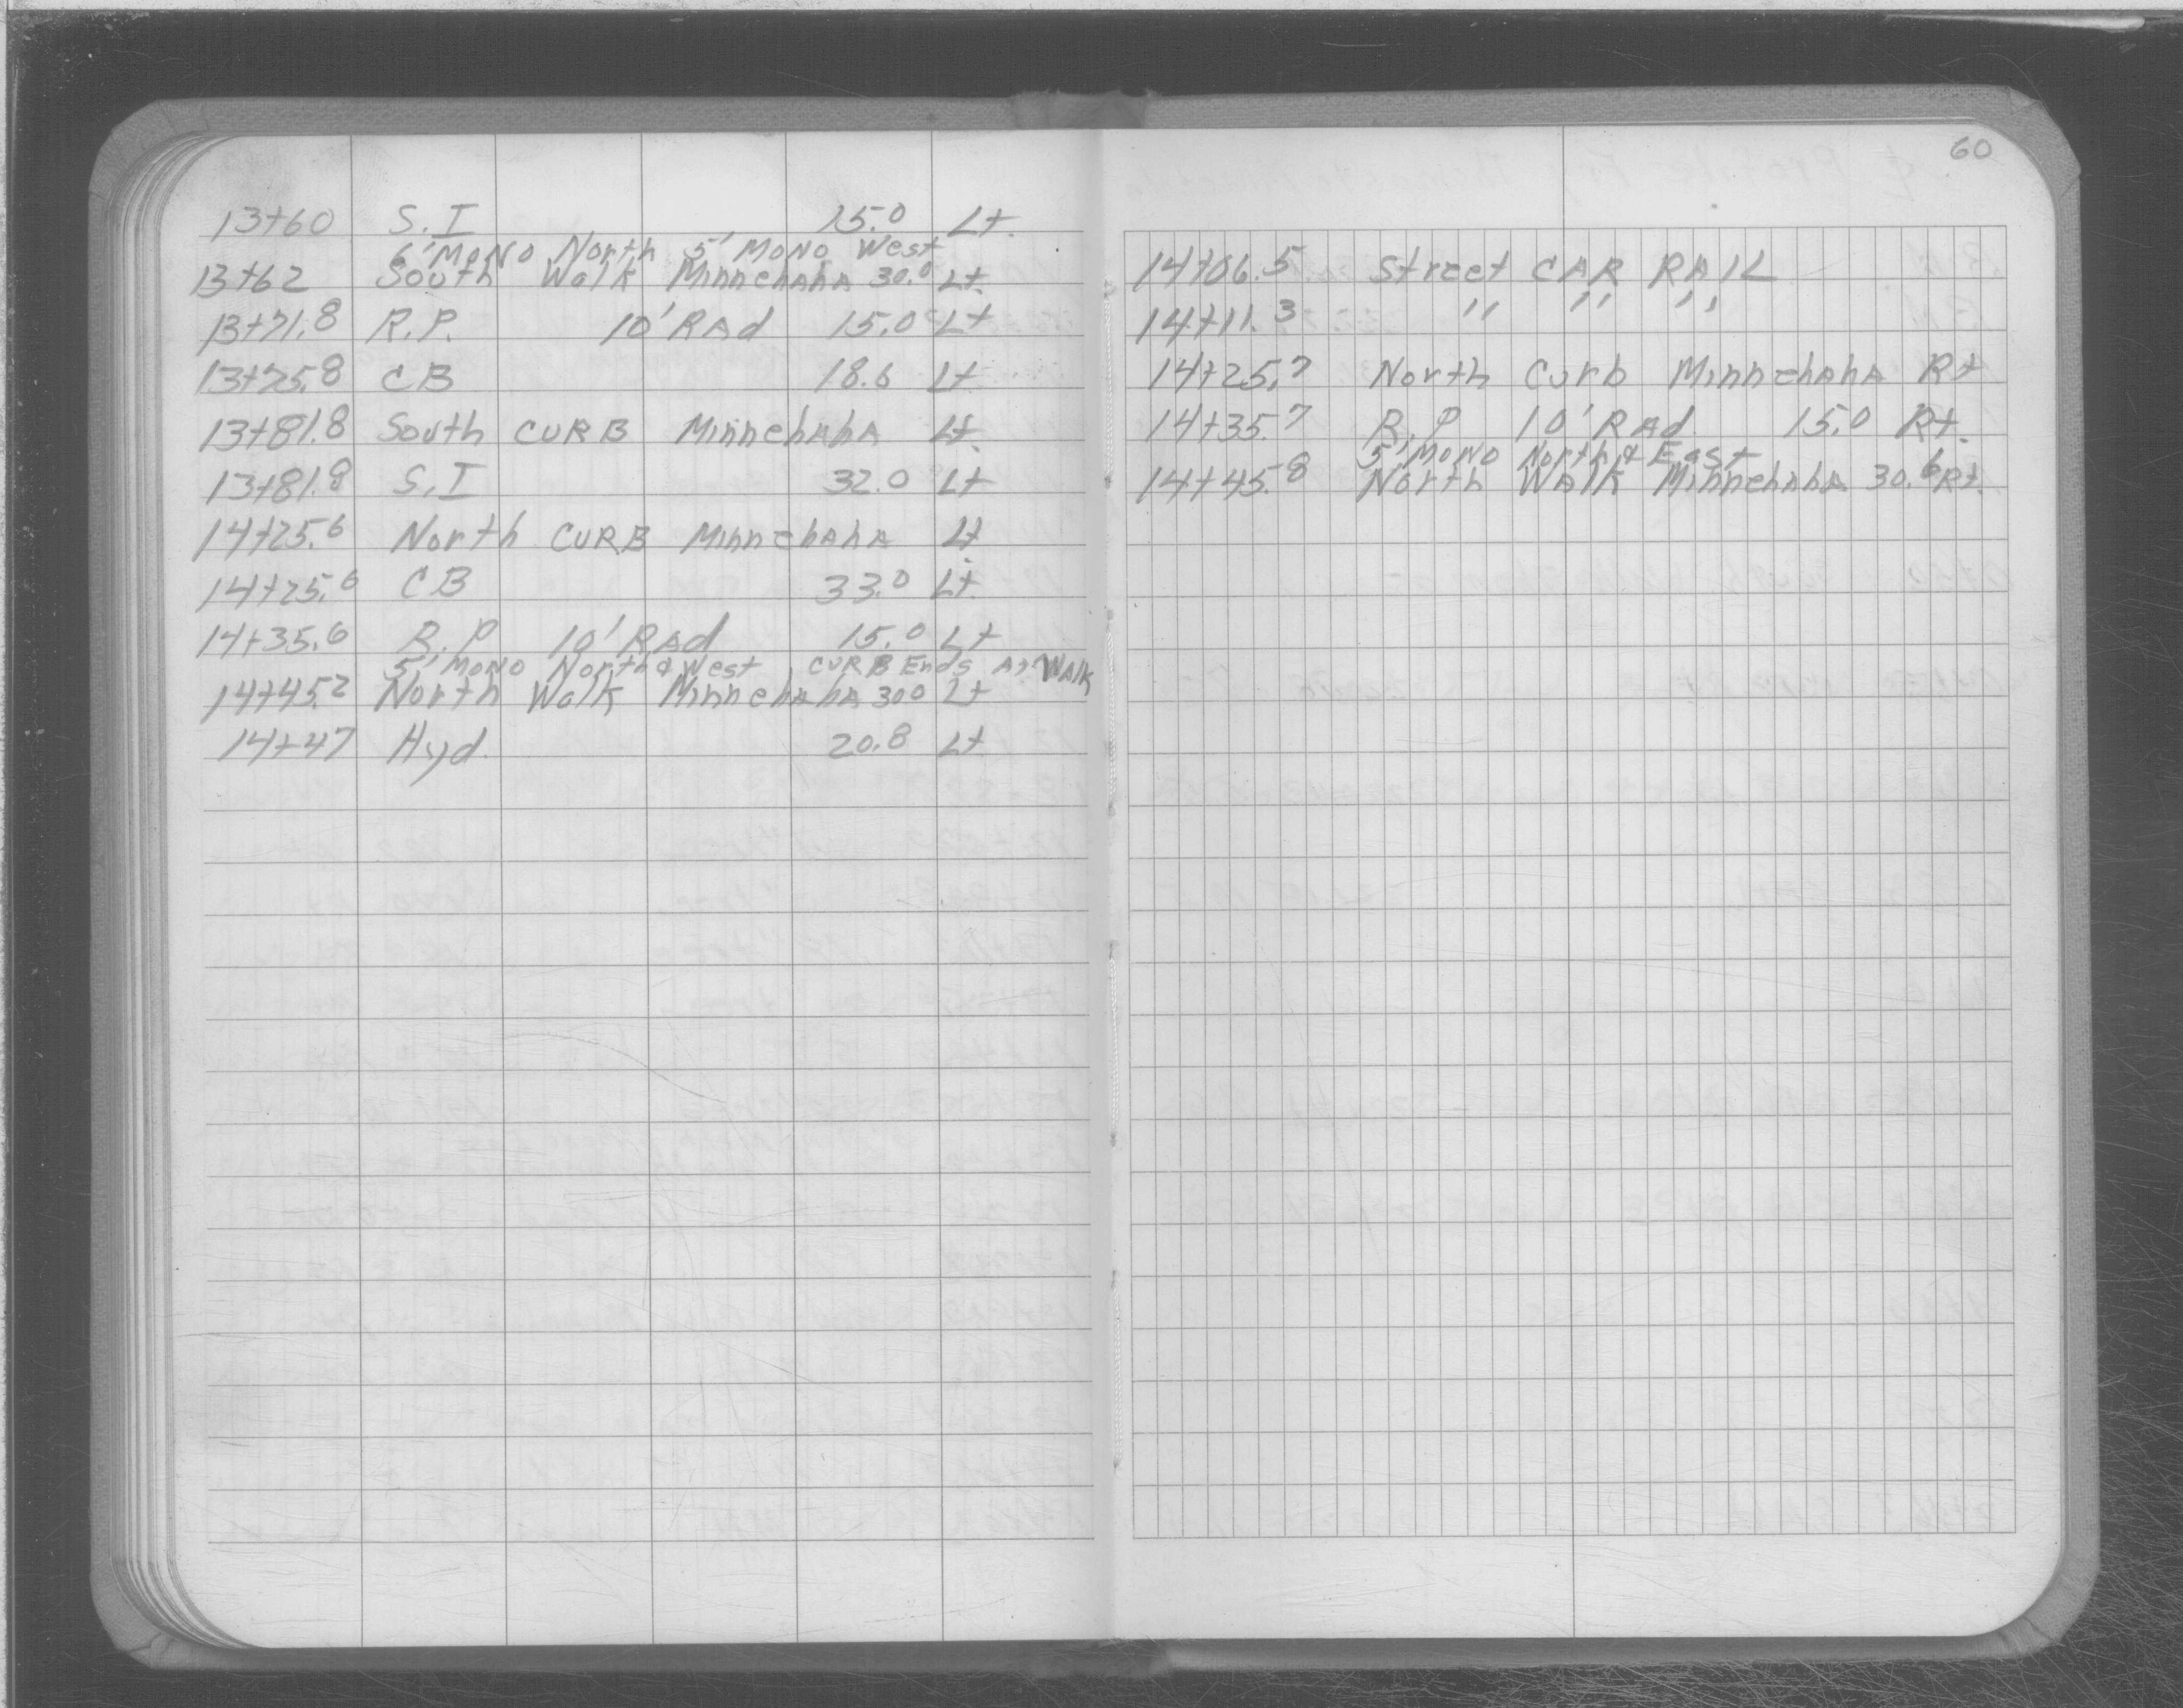 13+60 S.I 15.0 Lt.
6' MONO North 5' MONO West
13+62 South Walk Minnehaha 30.0 Lt.
13+71.8 R.P. 10' Rad 15.0 Lt
13+75.8 CB 18.6 Lt
13+81.8 South CURB Minnehaha Lt.
13+81.8 S.I 32.0 Lt
14+25.6 North CURB Minnehaha Lt
14+25.6 CB 33.0 Lt.
14+35.6 R.P 10' Rad 15.0 Lt
5' MONO North & West CURB Ends At Walk
14+45.2 North Walk Minnehaha 30.0 Lt
14+47 Hyd. 20.8 Lt
60
14+06.5 Street CAR RAIL
14+11.3 " " "
14+25.7 North Curb Minnehaha Rt
14+35.7 R.P 10' Rad 15.0 Rt.
5' MONO North & East
14+45.8 North Walk Minnehaha 30.6 Rt.